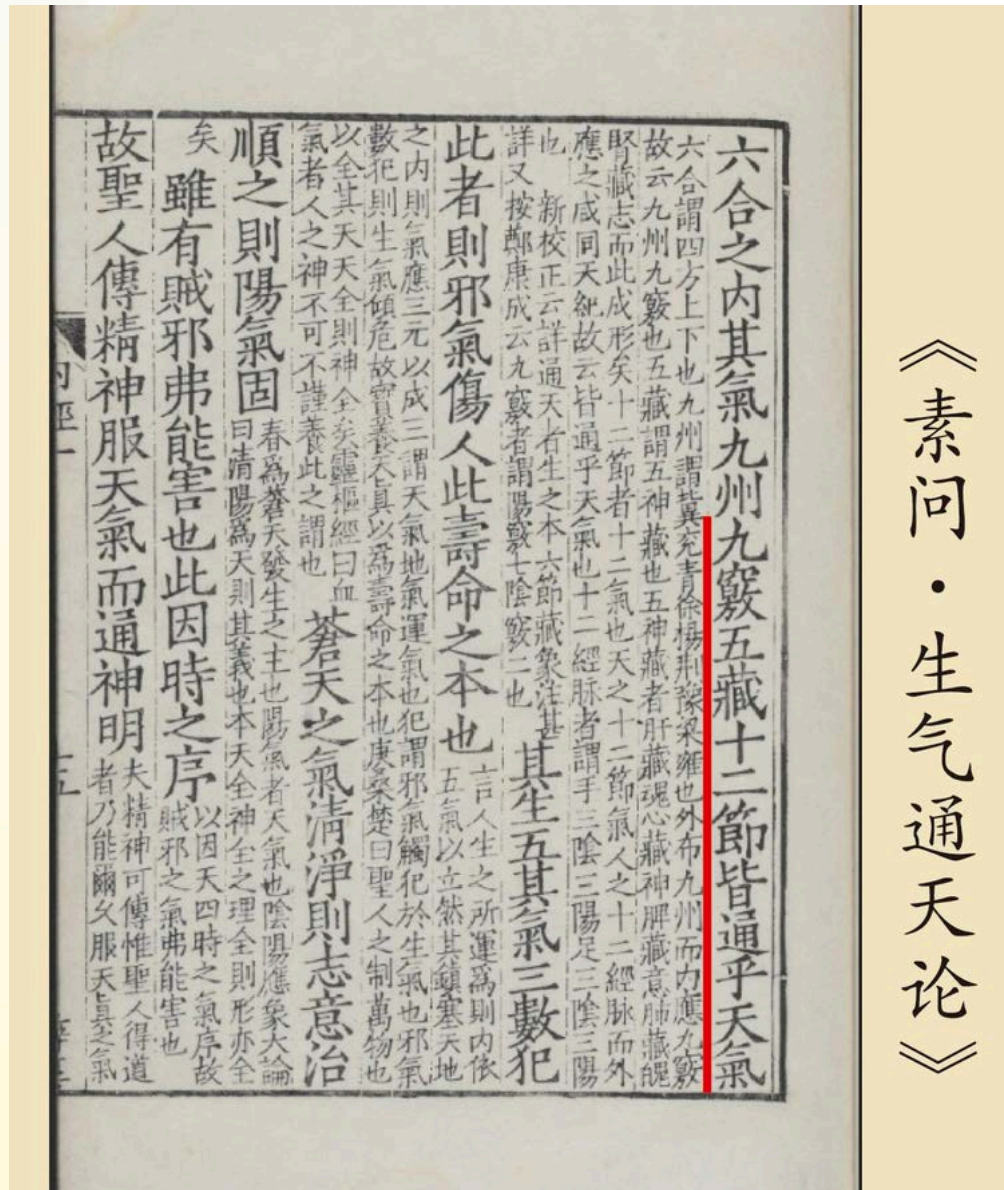 《素问·生气通天论》
六合之内其氣九州九竅五藏十二節皆通乎天氣
六合謂四方上下也九州謂冀兖青徐楊荆豫梁雍也外布九州而内應九竅
故云九州九竅也五藏謂五神藏也五神藏者肝藏魂心藏神脾藏意肺藏魄
腎藏志而此成形矣十二節者十二氣也天之十二節氣人之十二經脉而外
應之咸同天紀故云皆通乎天氣也十二經脉者謂手三陰三陽足三陰三陽
也 新校正云詳通天者生之本六節藏象注甚
詳又按鄭康成云九竅者謂陽竅七陰竅二也
其生五其氣三數犯
此者則邪氣傷人此壽命之本也
言人生之所運爲則内依
五氣以立然其鎮塞天地
之内則氣應三元以成三謂天氣地氣運氣也犯謂邪氣觸犯於生氣也邪氣
數犯則生氣傾危故寳養天真以爲壽命之本也庚桑楚曰聖人之制萬物也
以全其天天全則神全矣靈樞經曰血
氣者人之神不可不謹養此之謂也
蒼天之氣清淨則志意治
順之則陽氣固
春爲蒼天發生之主也陽氣者天氣也陰陽應象大論
曰清陽爲天則其義也本天全神全之理全則形亦全
矣
雖有賊邪弗能害也此因時之序
以因天四時之氣序故
賊邪之氣弗能害也
故聖人傳精神服天氣而通神明
夫精神可傳惟聖人得道
者乃能爾久服天真之氣
内經一
十五